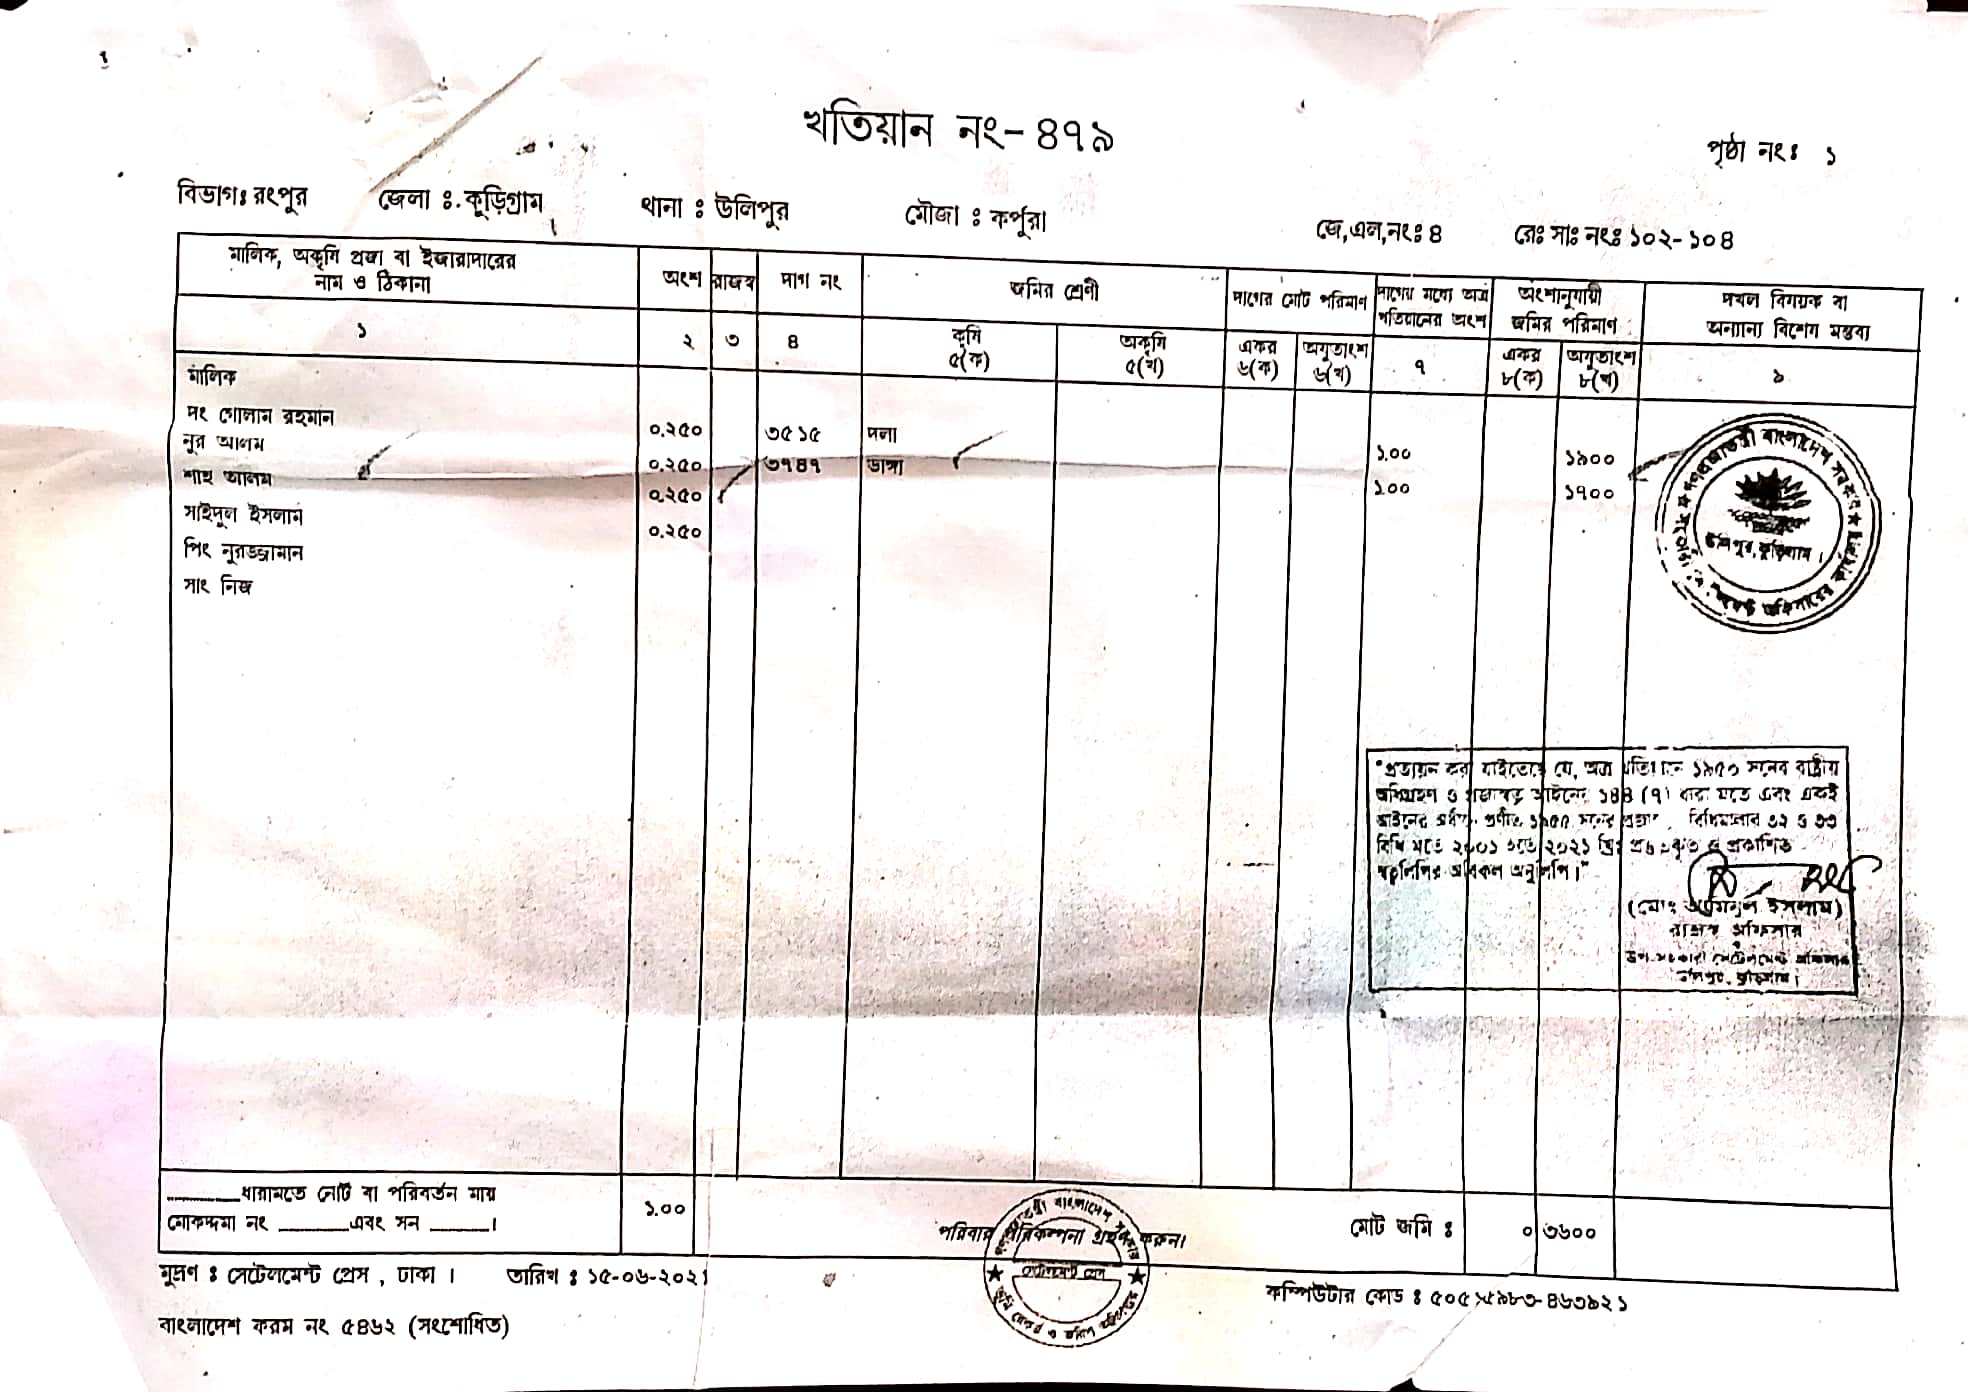 খতিয়ান নং- ৪৭৯
পৃষ্ঠা নং: ১
বিভাগ: রংপুর জেলা : কুড়িগ্রাম থানা : উলিপুর মৌজা : কর্পুরা জে,এল,নং: ৪ রে: সা: নং: ১০২-১০৪
মালিক, অকৃষি প্রজা বা ইজারাদারের
নাম ও ঠিকানা
অংশ
রাজস্ব
দাগ নং
জমির শ্রেণী
দাগের মোট পরিমাণ
দাগের মধ্যে অত্র
খতিয়ানের অংশ
অংশানুযায়ী
জমির পরিমাণ
দখল বিষয়ক বা
অন্যান্য বিশেষ মন্তব্য
১ ২ ৩ ৪
কৃষি
৫(ক)
অকৃষি
৫(খ)
একর
৬(ক)
অযুতাংশ
৬(খ)
৭
একর
৮(ক)
অযুতাংশ
৮(খ)
৯
মালিক
দং গোলাম রহমান
নুর আলম ০.২৫০ ৩৫১৫ দলা ১.০০ ১৯০০
শাহ আলম ০.২৫০ ৩৭৪৭ ডাঙ্গা ১.০০ ১৭০০
০.২৫০
সাইদুল ইসলাম ০.২৫০
পিং নুরজ্জামান
সাং নিজ
গণপ্রজাতন্ত্রী বাংলাদেশ সরকার
উলিপুর, কুড়িগ্রাম।
"প্রত্যয়ন করা যাইতেছে যে, অত্র খতিয়ান ১৯৫০ সনের রাষ্ট্রীয়
অধিগ্রহণ ও প্রজাস্বত্ব আইনের ১৪৪ (৭) ধারা মতে এবং একই
আইনের অধীনে প্রণীত ১৯৫৫ সনের প্রজাস্বত্ব বিধিমালার ৩২ ও ৩৩
বিধি মতে ২০০১ হতে ২০২১ খ্রিঃ প্রস্তুতকৃত ও প্রকাশিত
স্বত্বলিপির অবিকল অনুলিপি।"
(মোঃ ইসলাম)
রাজস্ব অফিসার
উপ-সহকারী সেটেলমেন্ট অফিসার
উলিপুর, কুড়িগ্রাম।
ধারামতে নোট বা পরিবর্তন মায়
মোকদ্দমা নং এবং সন ।
১.০০
পরিবার পরিকল্পনা গ্রহণ করুন।
মোট জমি : ০ ৩৬০০
মুদ্রণ : সেটেলমেন্ট প্রেস , ঢাকা । তারিখ : ১৫-০৬-২০২১
সেটেলমেন্ট প্রেস
কম্পিউটার কোড :
বাংলাদেশ ফরম নং ৫৪৬২ (সংশোধিত)